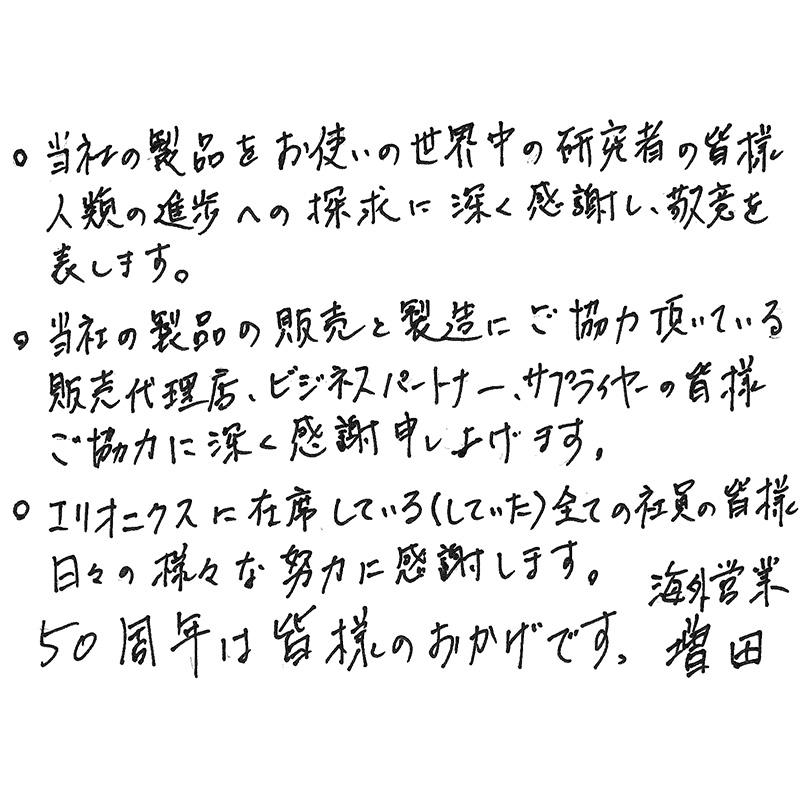 。当社の製品をお使いの世界中の研究者の皆様
人類の進歩への探求に深く感謝し、敬意を
表します。
。当社の製品の販売と製造にご協力頂いている
販売代理店、ビジネスパートナー、サプライヤーの皆様
ご協力に深く感謝申し上げます。
。エリオニクスに在席している(していた)全ての社員の皆様
日々の様々な努力に感謝します。
50周年は皆様のおかげです。
海外営業
増田